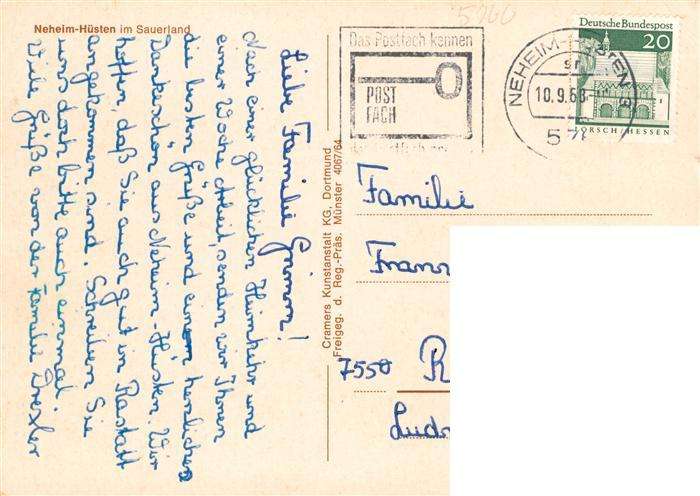 Neheim-Hüsten im Sauerland
Liebe Familie Grimm!
Nach einer glücklichen Heimkehr und
einer Woche Arbeit, senden wir Ihnen
die besten Grüße und einen herzlichen
Dankeschön aus Neheim-Hüsten. Wir
hoffen daß Sie auch gut in Rastatt
angekommen sind. Schreiben Sie
uns doch bitte auch einmal.
Viele Grüße von der Familie Drexler
Cramers Kunstanstalt KG, Dortmund
Freigeg. d. Reg.-Präs. Münster 4067/64
Das Postfach kennen
POST
FACH
NEHEIM-HÜSTEN
10.9.68
57
Deutsche Bundespost
20
LORSCH/HESSEN
Familie
Franz
7550 R
Ludw